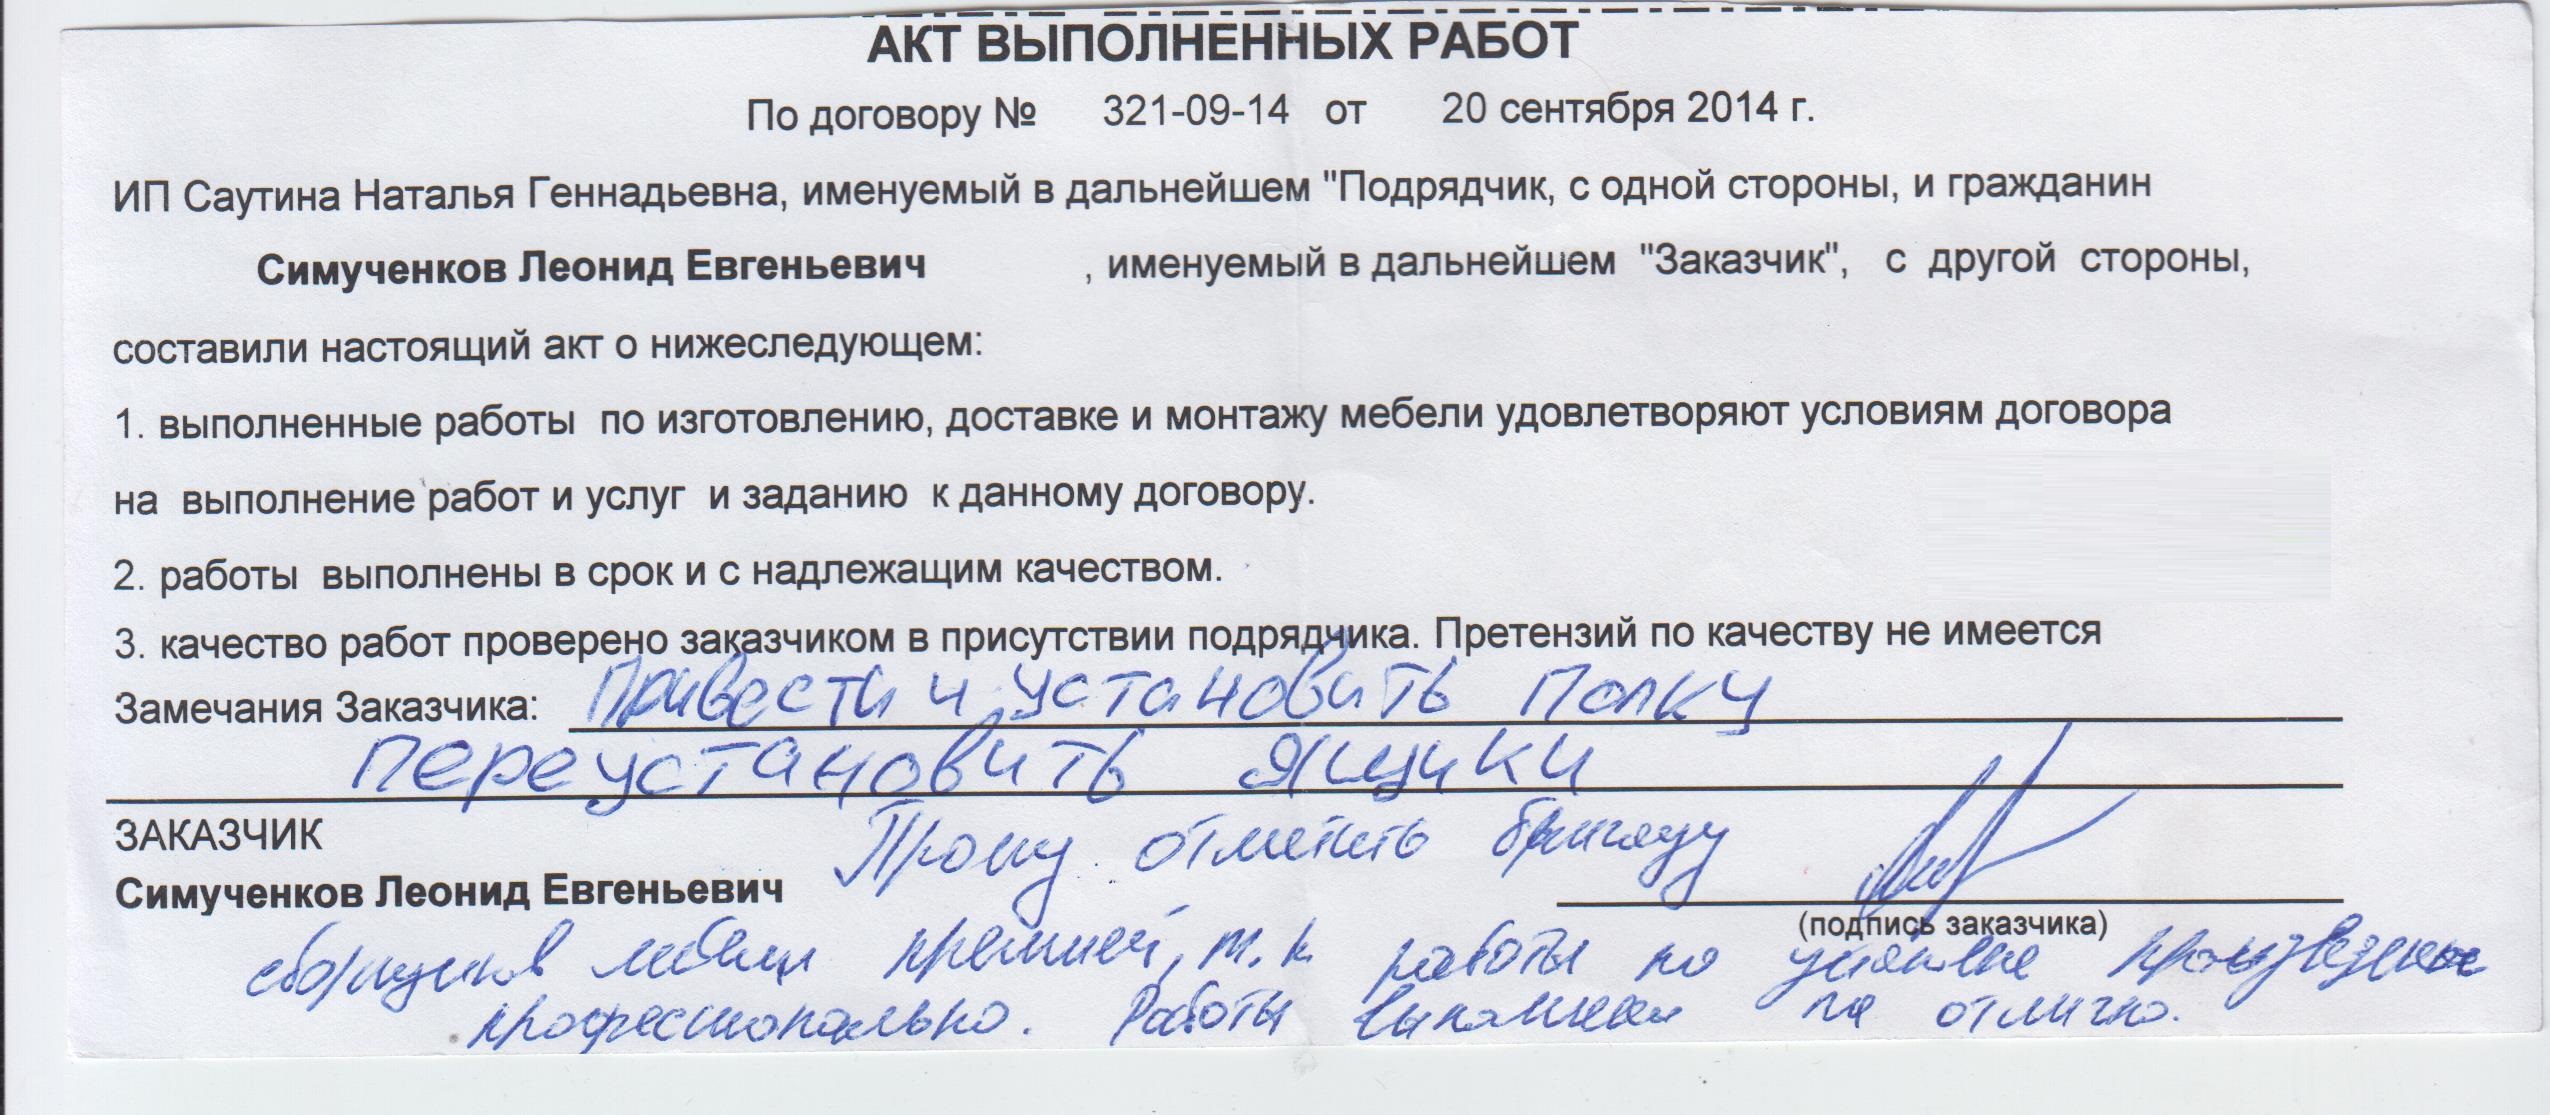 АКТ ВЫПОЛНЕННЫХ РАБОТ
По договору № 321-09-14 от 20 сентября 2014 г.
ИП Саутина Наталья Геннадьевна, именуемый в дальнейшем "Подрядчик, с одной стороны, и гражданин
Симученков Леонид Евгеньевич , именуемый в дальнейшем "Заказчик", с другой стороны,
составили настоящий акт о нижеследующем:
1. выполненные работы по изготовлению, доставке и монтажу мебели удовлетворяют условиям договора
на выполнение работ и услуг и заданию к данному договору.
2. работы выполнены в срок и с надлежащим качеством.
3. качество работ проверено заказчиком в присутствии подрядчика. Претензий по качеству не имеется
Замечания Заказчика: Привести и установить полку
переустановить ящики
ЗАКАЗЧИК
Прошу отметить бригаду
Симученков Леонид Евгеньевич
(подпись заказчика)
сборщиков мебели премией, т.к. работы по установке произведены
профессионально. Работы выполнены на отлично.